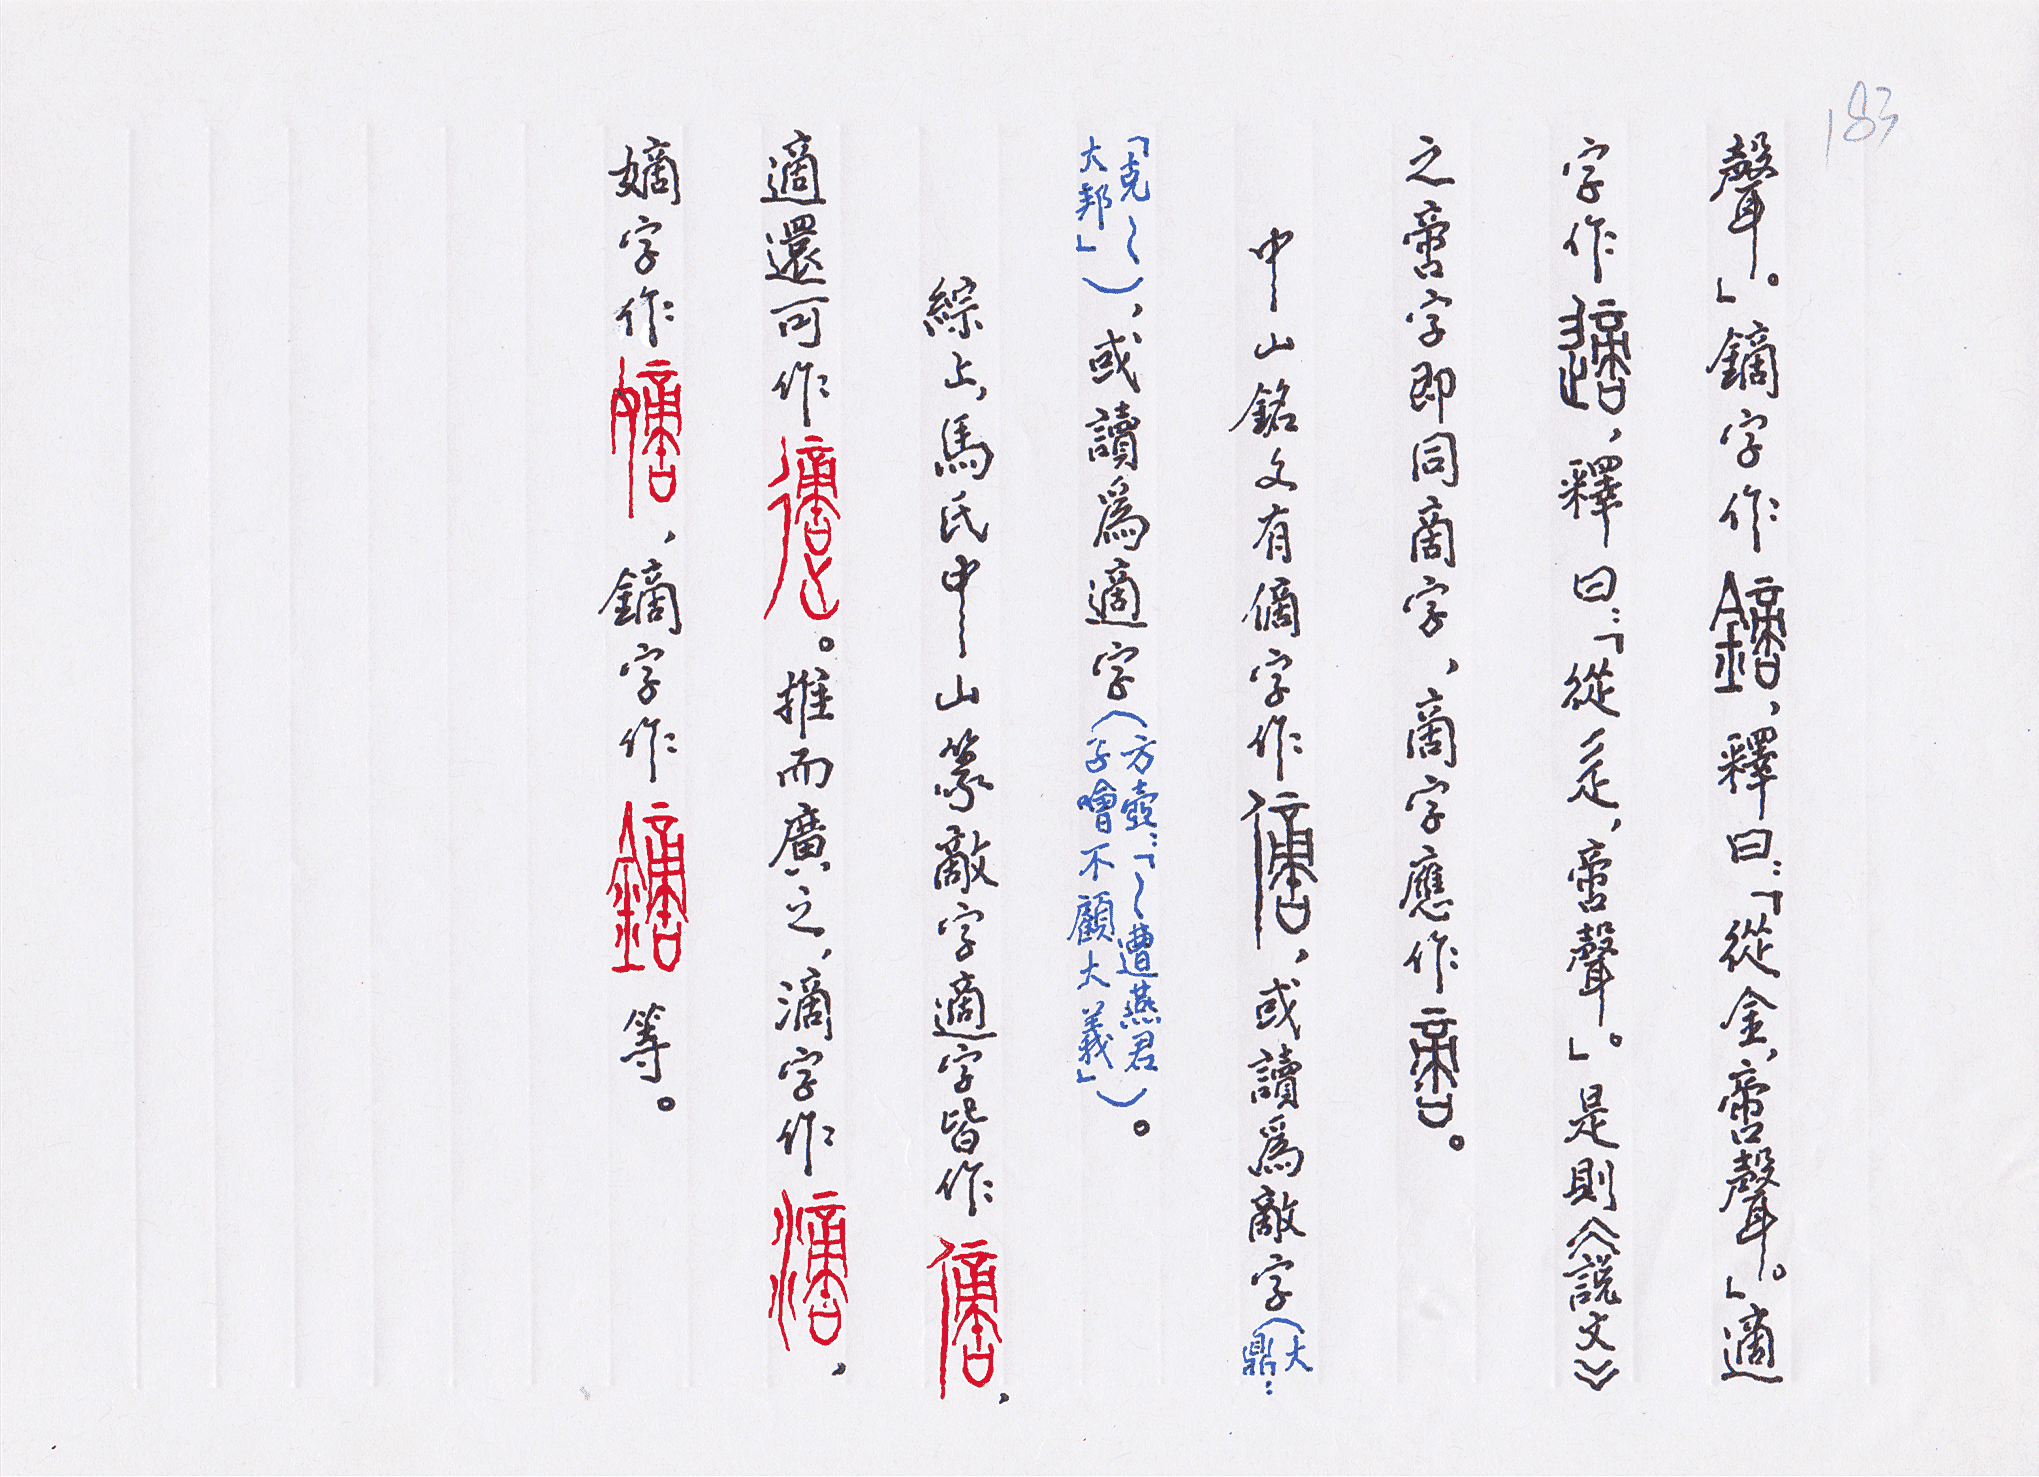 183
聲。」鏑字作，釋曰：「從金，啻聲。」適
字作，釋曰：「從辵，啻聲。」是則《說文》
之啻字即同啇字，啇字應作。
中山銘文有僪字作，或讀爲敵字（大鼎：
「克～大邦」），或讀爲適字（方壺：「～遭燕君子噲不顧大義」）。
綜上，馬氏中山篆敵字適字皆作，
適還可作。推而廣之，滴字作，
嫡字作，鏑字作等。